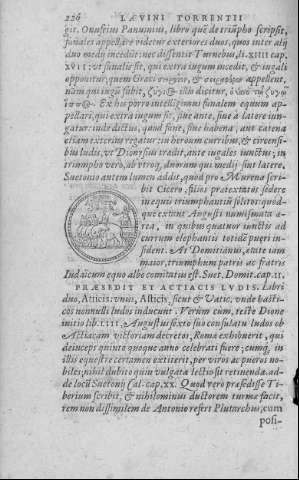 226 LÆVINI TORRENTII
git. Onufrius Panuinius, libro quē de triūpho scripsit,
funales appellare videtur exteriores duos, quos inter alij
duo medij incedūt: nec dissentit Turnebus, li. XIIII cap.
XVII: vt funalis sit, qui extra iugum incedit, & iugali
opponitur, quem Græci & appellent,
nam qui iugū subit, illis dicitur,
Ex his porro intelligimus funalem equum ap-
pellari, qui extra iugum sit, siue ante, siue a latere iun-
gatur: inde dictus, quòd fune, siue habena, aut catena
etiam exterim regatur: in bērorum curribus, & circensi-
bus ludis, vt Dionysius tradit, ante iugales iunctus; in
triumpho verò, ab vtroq; duorum qui medij sunt latere.
Suetonio autem lumen addit, quòd pro Murena scri-
bit Cicero, filios prætextatis sedere
in equis triumphantiū solitos: quod-
que extant Augusti numismata æ-
rea, in quibus quatuor iunctis ad
currum elephantis totidē pueri in-
sident. At Domitianus, ætate iam
maior, triumphum patris ac fratris
Iudaïcum equo albo comitatus est. Suet. Domit. cap. II.
PRÆSEDIT ET ACTIACIS LVDIS. Libri
duo, Atticis: vnus, Asticis, sicut & Vatic. vnde hasti-
cos nonnulli ludos inducunt. Verùm cum, teste Dione
initio lib. LIII, Augustus sexto suo consulatu ludos ob
Actiacam victoriam decretos, Romæ exhibuerit, qui
deinceps quinto quoque anno celebrati fuere; cumq; in
illis equestre certamen extiterit, per viros ac pueros no-
biles; nihil dubito quin vulgata lectio sit retinenda. ad-
de locū Suetonij Cal. cap. XX. Quod verò præsedisse Ti-
berium scribit, & nihilominus ductorem turmæ facit,
rem non dissimilem de Antonio refert Plutarchus, cum
posi-